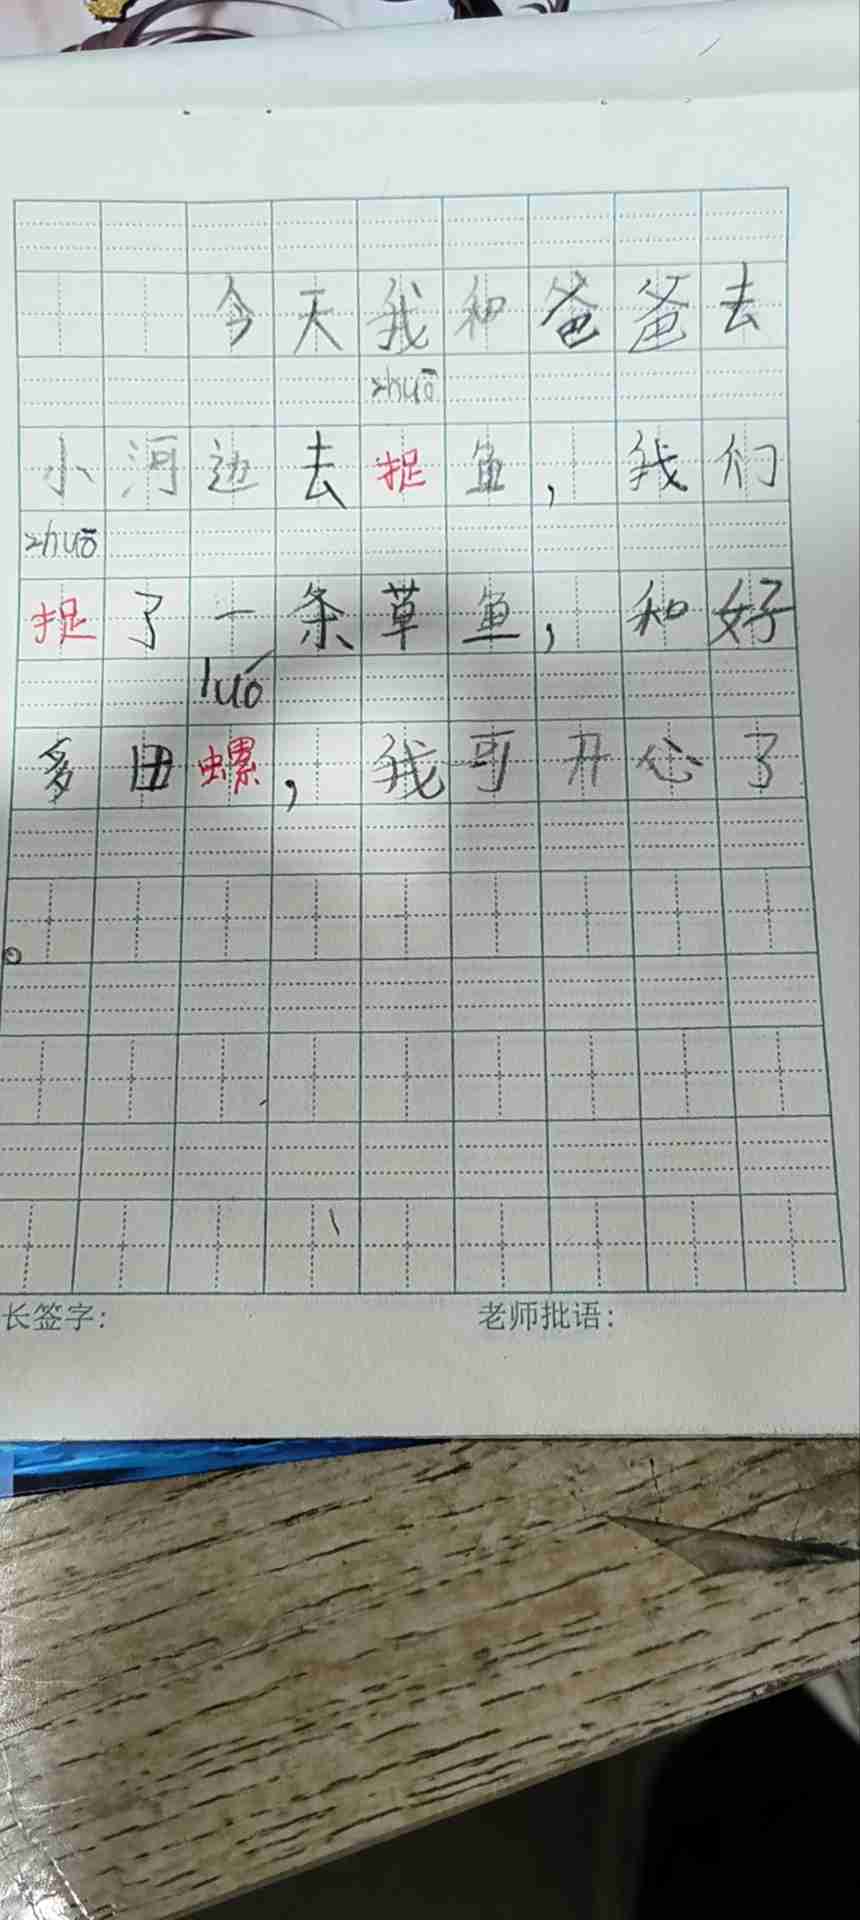 今天我和爸爸去
zhuō
小河边去捉鱼，我们
zhuō
捉了一条草鱼，和好
luó
多田螺，我可开心了
。
长签字：
老师批语：